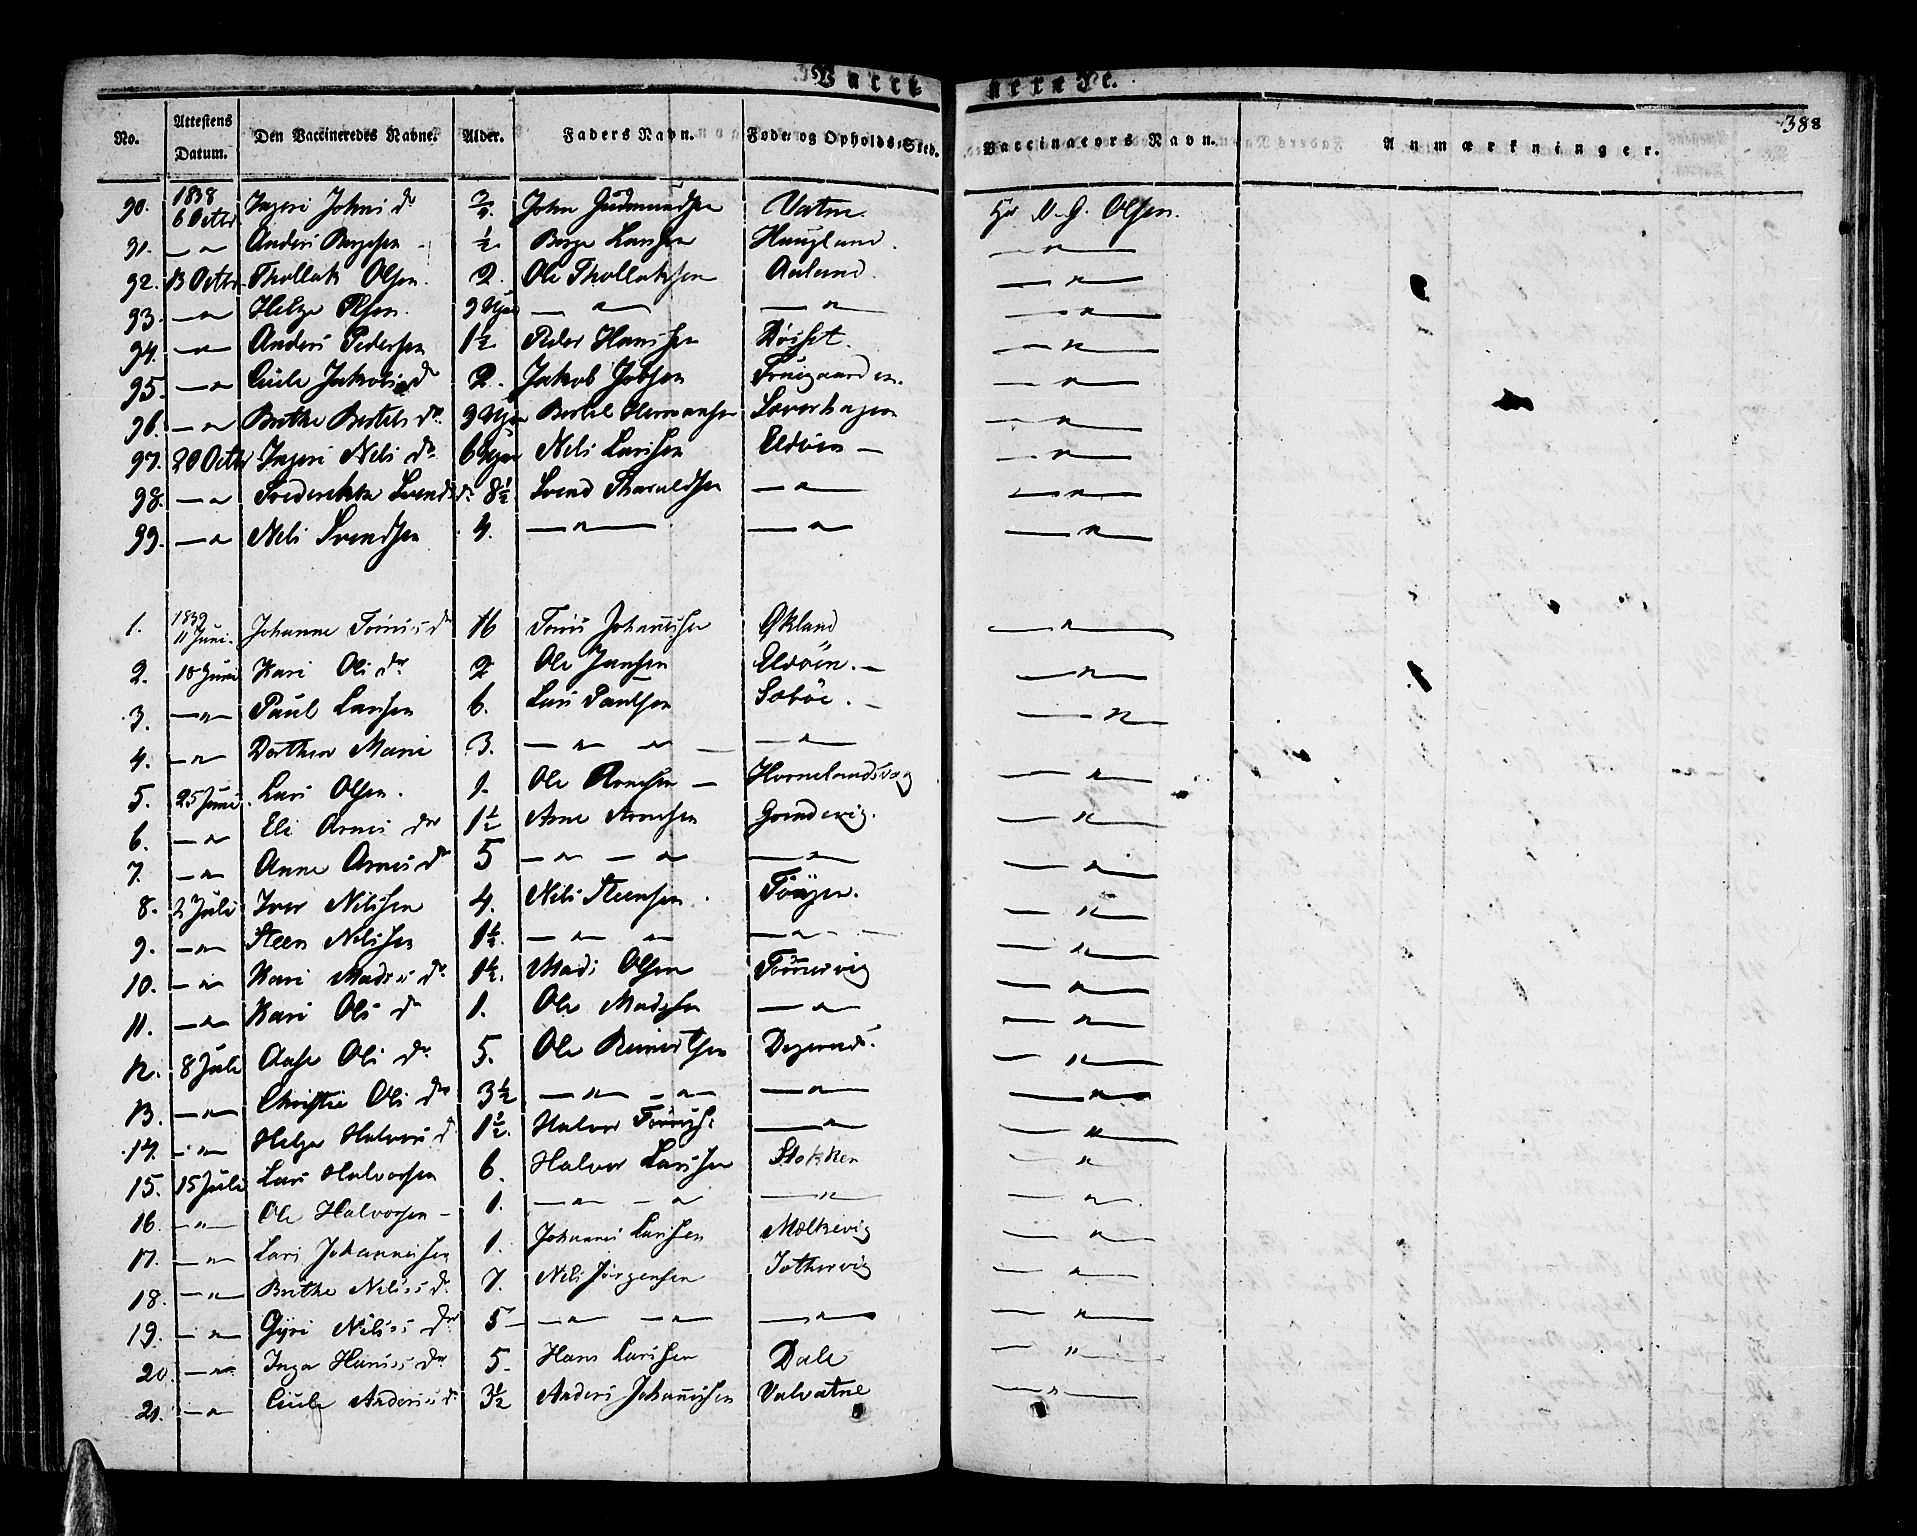 Vacci nerede.
388
No. Attestens Datum. Den Vaccineredes Navne. Alder. Faders Navn. Føde- og Opholds-Sted. Vaccinateurs Navn. Anmærkninger.
90. 1838 6 Octbr Ingeri Johns dr John Gudmundsen Vatne. Hr N. G. Olsen.
91. — " Anders Børgesen — ½ Børge Larssen Haugland. — " —
92. 13 Octbr Thollak Olsen. 2. Ole Thollaksen Aaland. — " —
93. — " Helge Olsen. 9 Uger — " — — " — — " —
94. — " Anders Pedersen 1½ Peder Hanssen Døsset. — " —
95. — " Cicile Jakobs dr 2. Jakob Jobsen Fruegaarden. — " —
96. — " Brithe Bertels dr. 9 Uger Bertel Hermansen Søverhagen — " —
97. 20 Octbr Ingeri Nels dr 6 Uger Nels Larssen Eldøen — — " —
98. — " Frederikke Svends dr 8½ Svend Tharaldsen — " — — " —
99. — " Nels Svendsen 4. — " — — " — — " —
1. 1839 11 Juni. Johanne Tønnis dr 16 Tønnis Johannessen Økland — " —
2. 18 Juni Kari Ols dr 2 Ole Jansen Eldøen. — — " —
3. — " — Paul Larssen 6. Lars Paulsen Sæbøe. — — " —
4. — " Dorthea Marie 3. — " — " — — " —
5. 25 Juni. Lars Olsen. 1. Ole Arnesen — Hornelandsvog — " —
6. — " Eli Arnes dr 1½ Arne Arnesen Grindevig. — " —
7. — " Anne Arnes dr 5 — " — " — " — — " —
8. 2 Juli Iver Nilssen 4. Nils Steensen. Tøngen. — " —
9. — " — Steen Nilssen 1½. — " " — " — — " —
10. — " Kari Mads dr 1½. Mads Olsen Tønnevig — " —
11. — " — Kari Ols dr 1. Ole Madssen — " — — " —
12. 8 Juli Aase Ols dr 5. Ole Reinertsen Degernes. — " —
13. — " — Christie Ols dr 3½ — " — — " — — " — — " —
14. — " Helge Halvors d 1½. Halvor — " — — " —
15. 15 Juli Lars Halvorsen 6. Halvor Larssen Stokken — " —
16. — " — Ole Halvorsen — 1. — " — " — " — — " .
17. — " — Lars Johannessen 1. Johannes Larssen Mølkevig — " —
18. — " — Brithe Nilss dr 7. Nils Jørgensen Tothervig — " —
19. — " — Gyri Nilss dr 5 — — " — — " — — " — — " —
20. — " Inga Hanss dr 5. Hans Larssen Dale — " —
21. — " Cicile Anderss dr 3½ Anders Johannessen Valvatne — " —